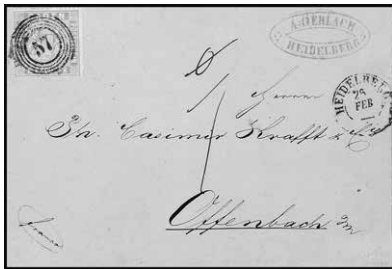 57
A. GERLACH
HEIDELBERG
HEIDELBERG
26
FEB
Herrn
Ph. Casimir Krafft &
Offenbach a/m
franco